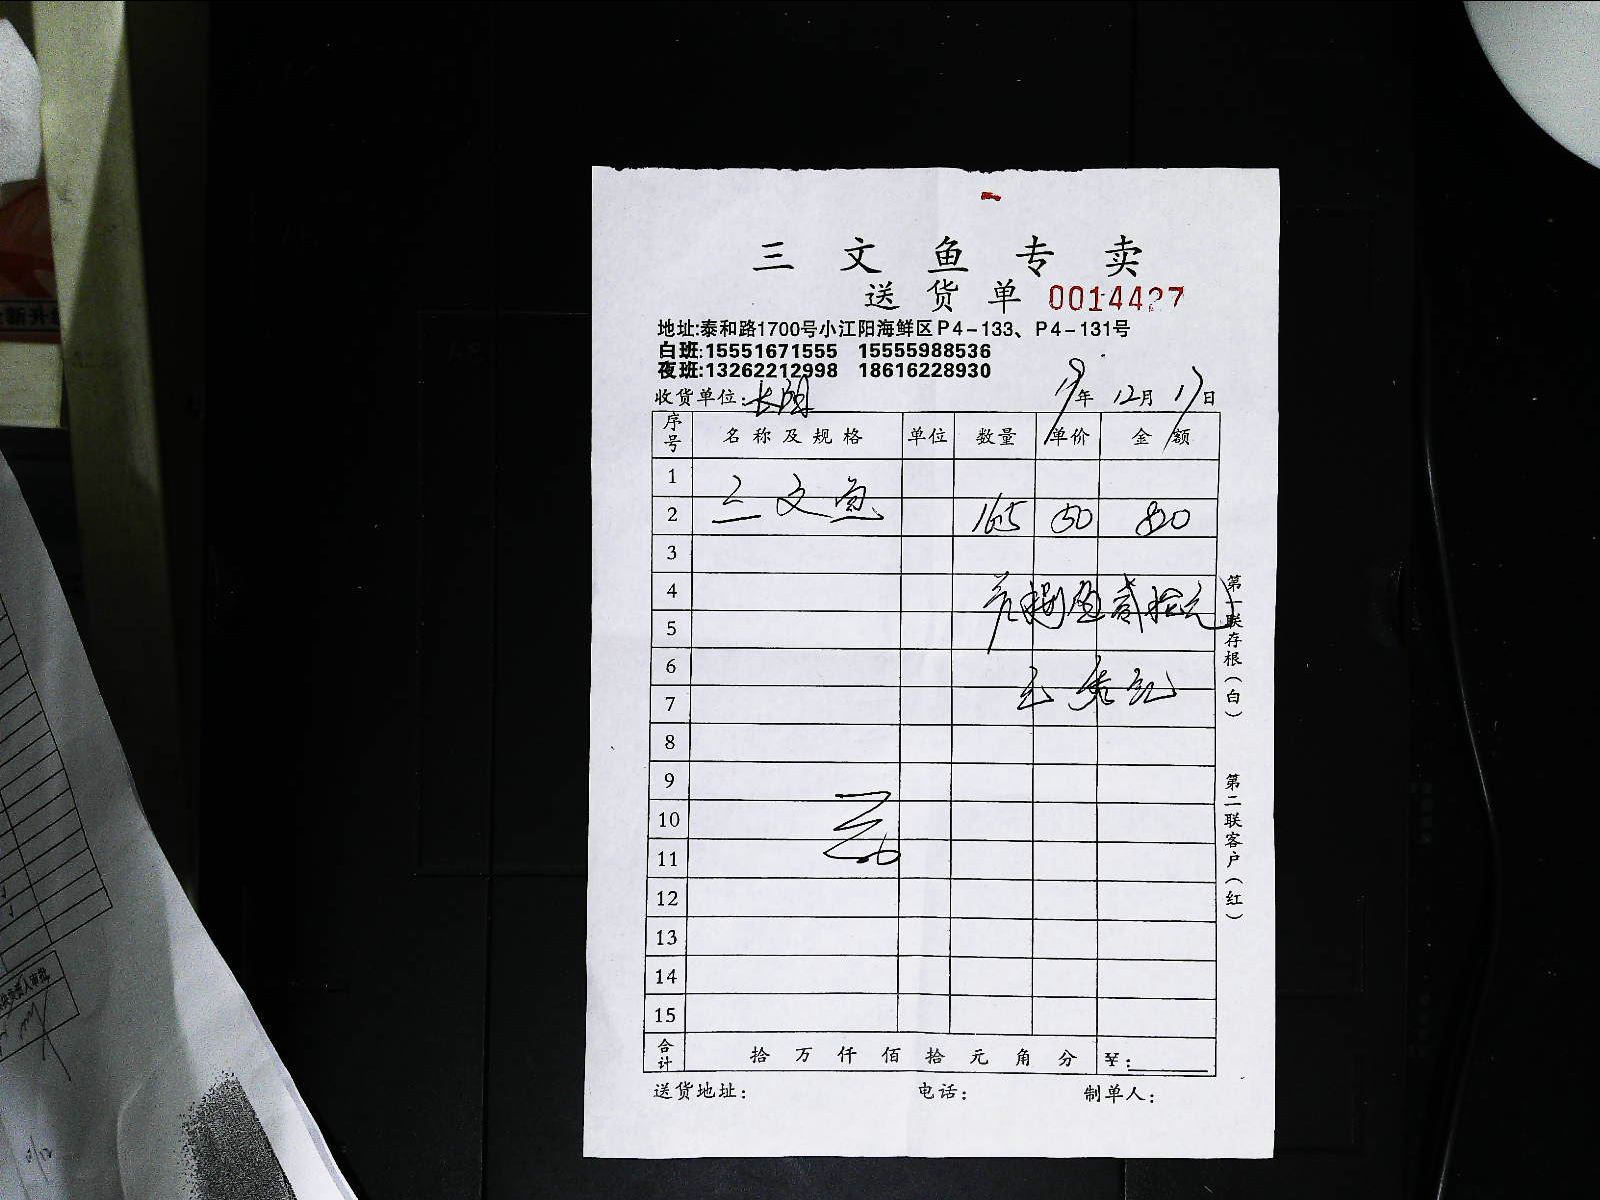 三文鱼专卖
送货单 0014427
地址:泰和路1700号小江阳海鲜区P4-133、P4-131号
白班:15551671555 15555988536
夜班:13262212998 18616228930
收货单位: 19年 12月 17日
序号 名称及规格 单位 数量 单价 金额
1
2 三文鱼 165 50 820
3
4
捌佰贰拾元
5
6
7
8
9
10
11
12
13
14
15
合计 拾 万 仟 佰 拾 元 角 分 ¥:
送货地址: 电话: 制单人:
第一联存根(白)
第二联客户(红)
新升